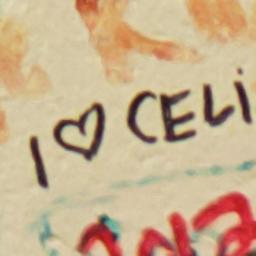 I ♡ CELi